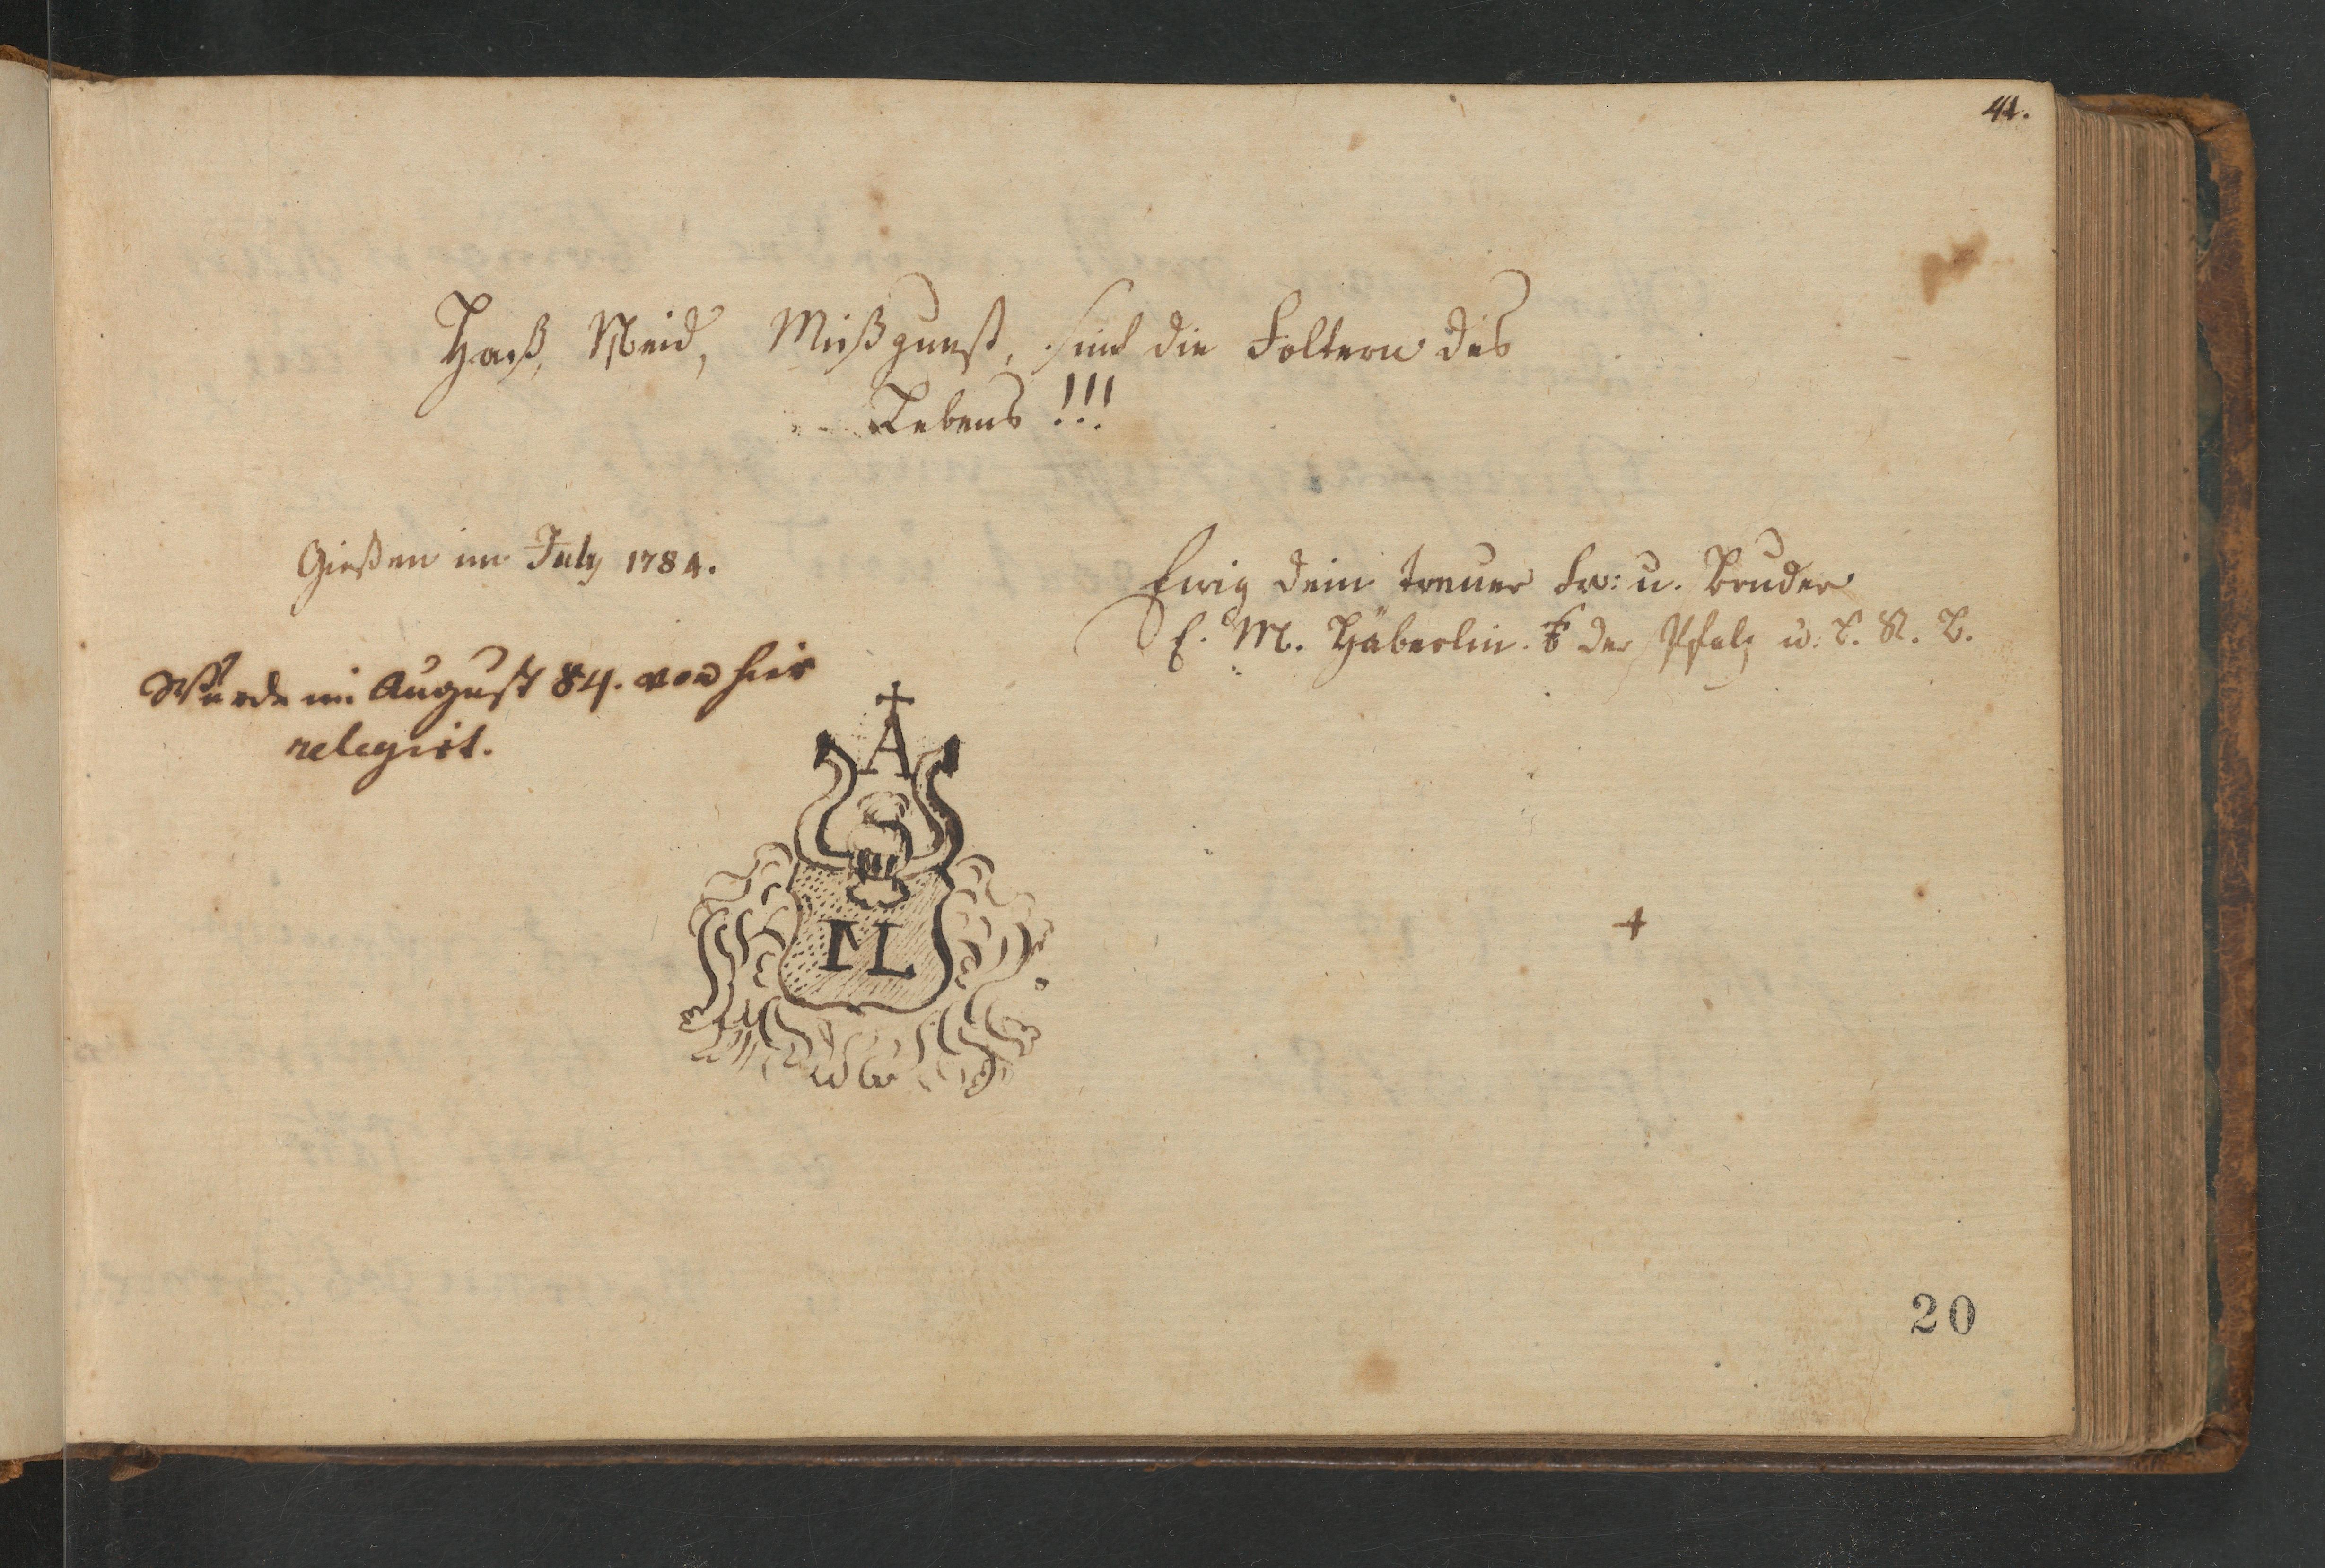 41.
Haß, Neid, Mißgunst, sind die Foltern des
Lebens !!!
Gießen im July 1784.
Ewig dein treuer Fr: u. Bruder
E. M. Häberlin. der Pfalz u. C. R. B.
Wurde im August 84. von hier
relegirt.
A
IL
20